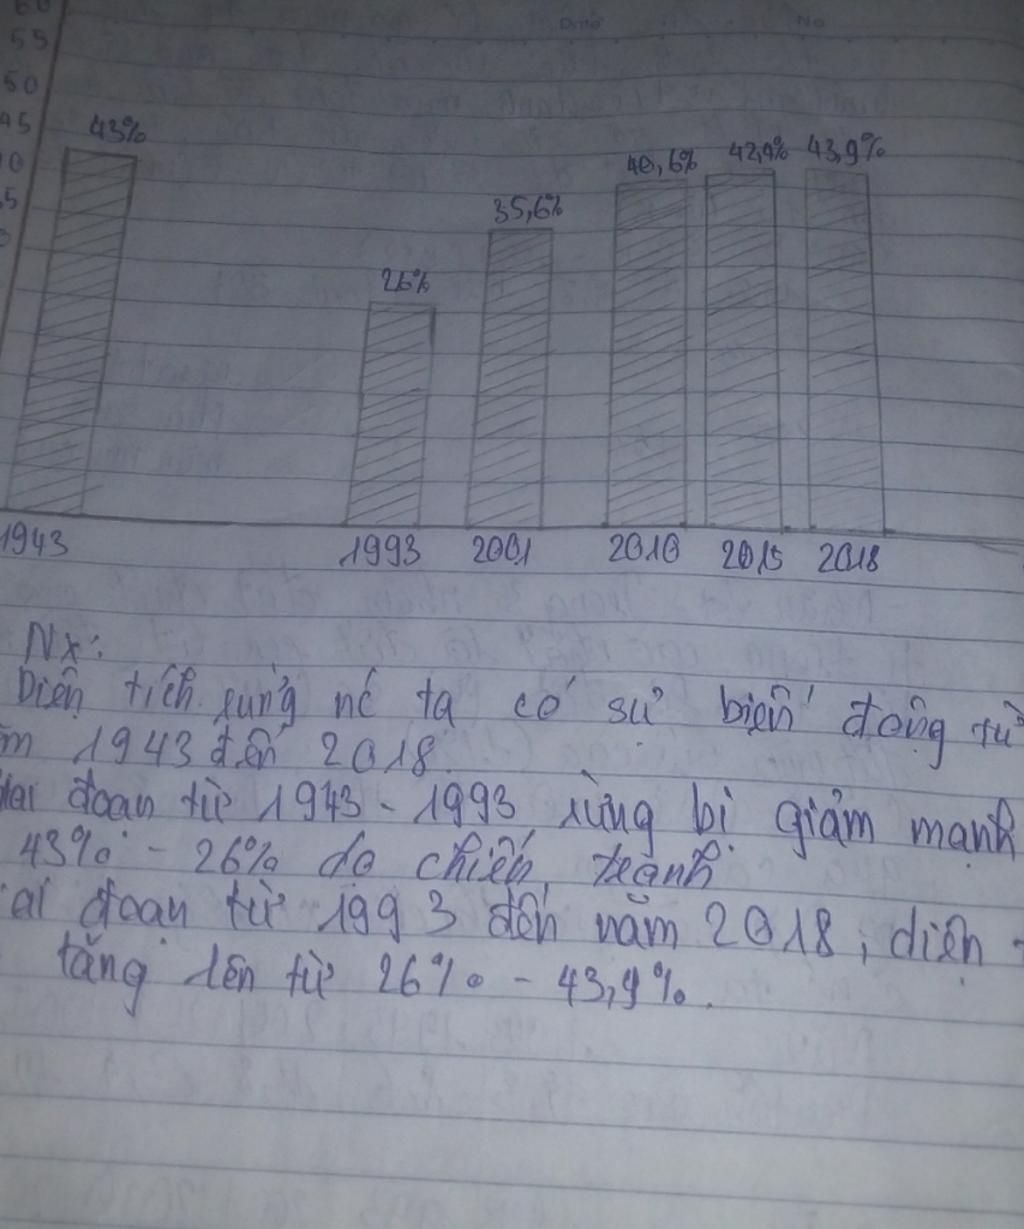 60
55
50
45
43%
40
42,4% 43,9%
40,6%
35
35,6%
26%
1943 1993 2001 2010 2015 2018
Nx:
Diện tích rừng nc ta có sự biến động từ
m 1943 đến 2018
iai đoạn từ 1943 - 1993 rừng bị giảm mạnh
43% - 26% do chiến tranh
ai đoạn từ 1993 đến năm 2018, diện
tăng lên từ 26% - 43,9%.